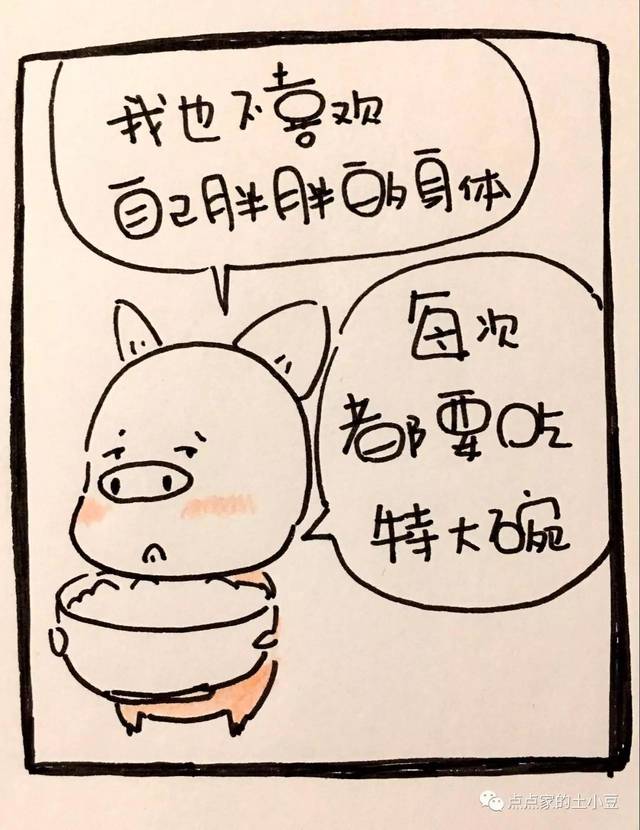 我也不喜欢
自己胖胖的身体
每次
都要吃
特大碗
点点家的土小豆